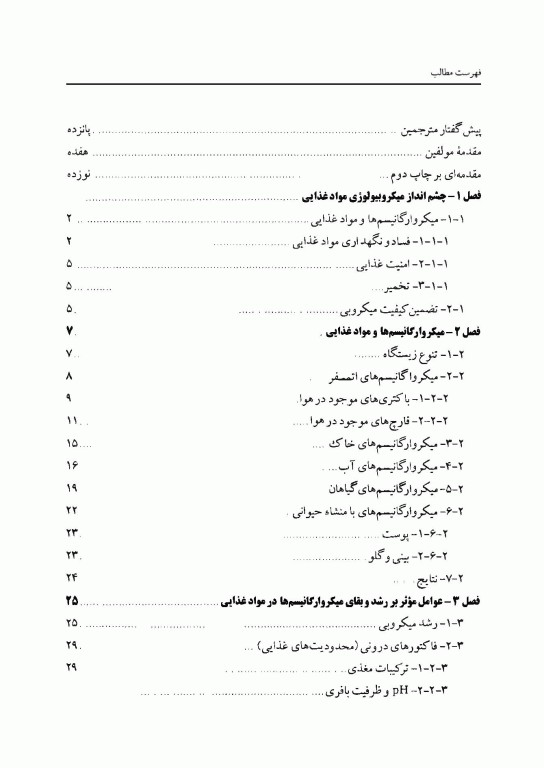 فهرست مطالب
پیش‌گفتار مترجمین .......... پانزده
مقدمهٔ مولفین .......... هفده
مقدمه‌ای بر چاپ دوم .......... نوزده
فصل ۱- چشم انداز میکروبیولوژی مواد غذایی ..........
۱-۱- میکروارگانیسم‌ها و مواد غذایی .......... ۲
۱-۱-۱- فساد و نگهداری مواد غذایی .......... ۲
۲-۱-۱- امنیت غذایی .......... ۵
۳-۱-۱- تخمیر .......... ۵
۲-۱- تضمین کیفیت میکروبی .......... ۵
فصل ۲- میکروارگانیسم‌ها و مواد غذایی . ۷
۱-۲- تنوع زیستگاه ......... ۷
۲-۲- میکرواگانیسم‌های اتمسفر . ۸
۱-۲-۲- باکتری‌های موجود در هوا. ۹
۲-۲-۲- قارچ‌های موجود در هوا ..... ۱۱
۳-۲- میکروارگانیسم‌های خاک .... ۱۵
۴-۲- میکروارگانیسم‌های آب.... ۱۶
۵-۲- میکروارگانیسم‌های گیاهان ۱۹
۶-۲- میکروارگانیسم‌های با منشاه حیوانی . ۲۲
۱-۶-۲- پوست .......... ۲۳
۲-۶-۲- بینی و گلو .......... ۲۳
۷-۲- نتایج .... ۲۴
فصل ۳- عوامل مؤثر بر رشد و بقای میکروارگانیسم‌ها در مواد غذایی .......... ۲۵
۱-۳- رشد میکروبی .......... ۲۵
۲-۳- فاکتورهای درونی (محدودیت‌های غذایی) ... ۲۹
۱-۲-۳- ترکیبات مغذی .......... ۲۹
۲-۲-۳- pH و ظرفیت بافری ..........